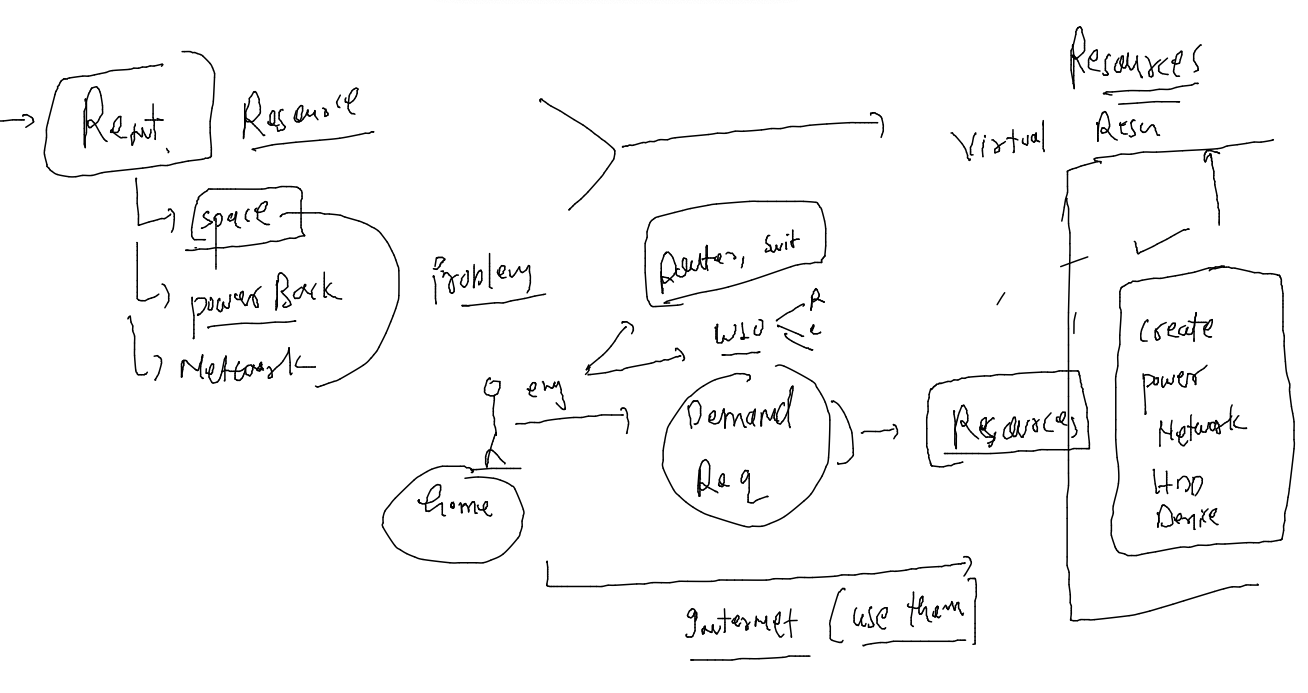 Rent
Resource
space
power Back
Network
Problem
Router, Swit
R
c
eng
Demand
Req
home
Internet (use them)
Resources
Virtual Resu
Resources
Create
power
Network
HDD
Device